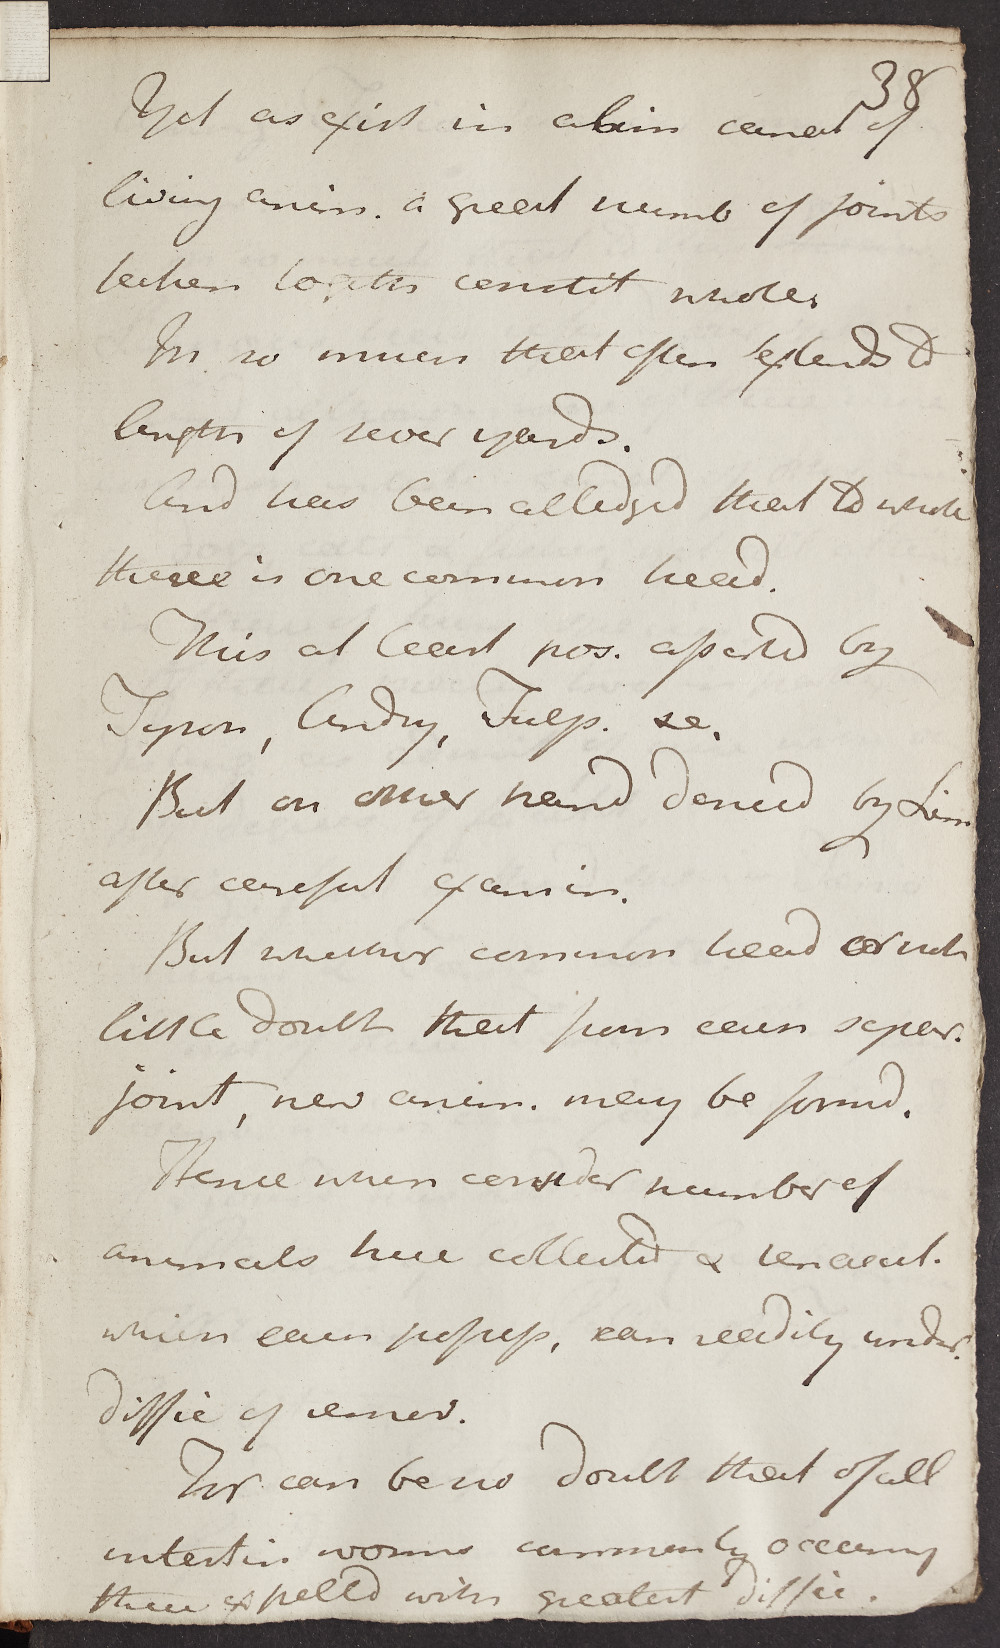 38
Yet as exist in alim canal of
living anim. a great numb of joints
taken togeth constit whole.
In so much that often extends to
length of sever yards.
And has been alledged that to whole
there is one common head.
This at least pos. asserted by
Tyson, Andry, Tulp. &c.
But on other hand denied by Linn
after careful examin.
But whether common head or not
little doubt that from each separ.
joint, new anim. may be formd.
Hence when consider number of
animals here collected & tenacit.
which each possess, can readily under.
diffic of remov.
Thr can be no doubt that of all
intestin worms commonly occuring
these expelld with greatest diffic.